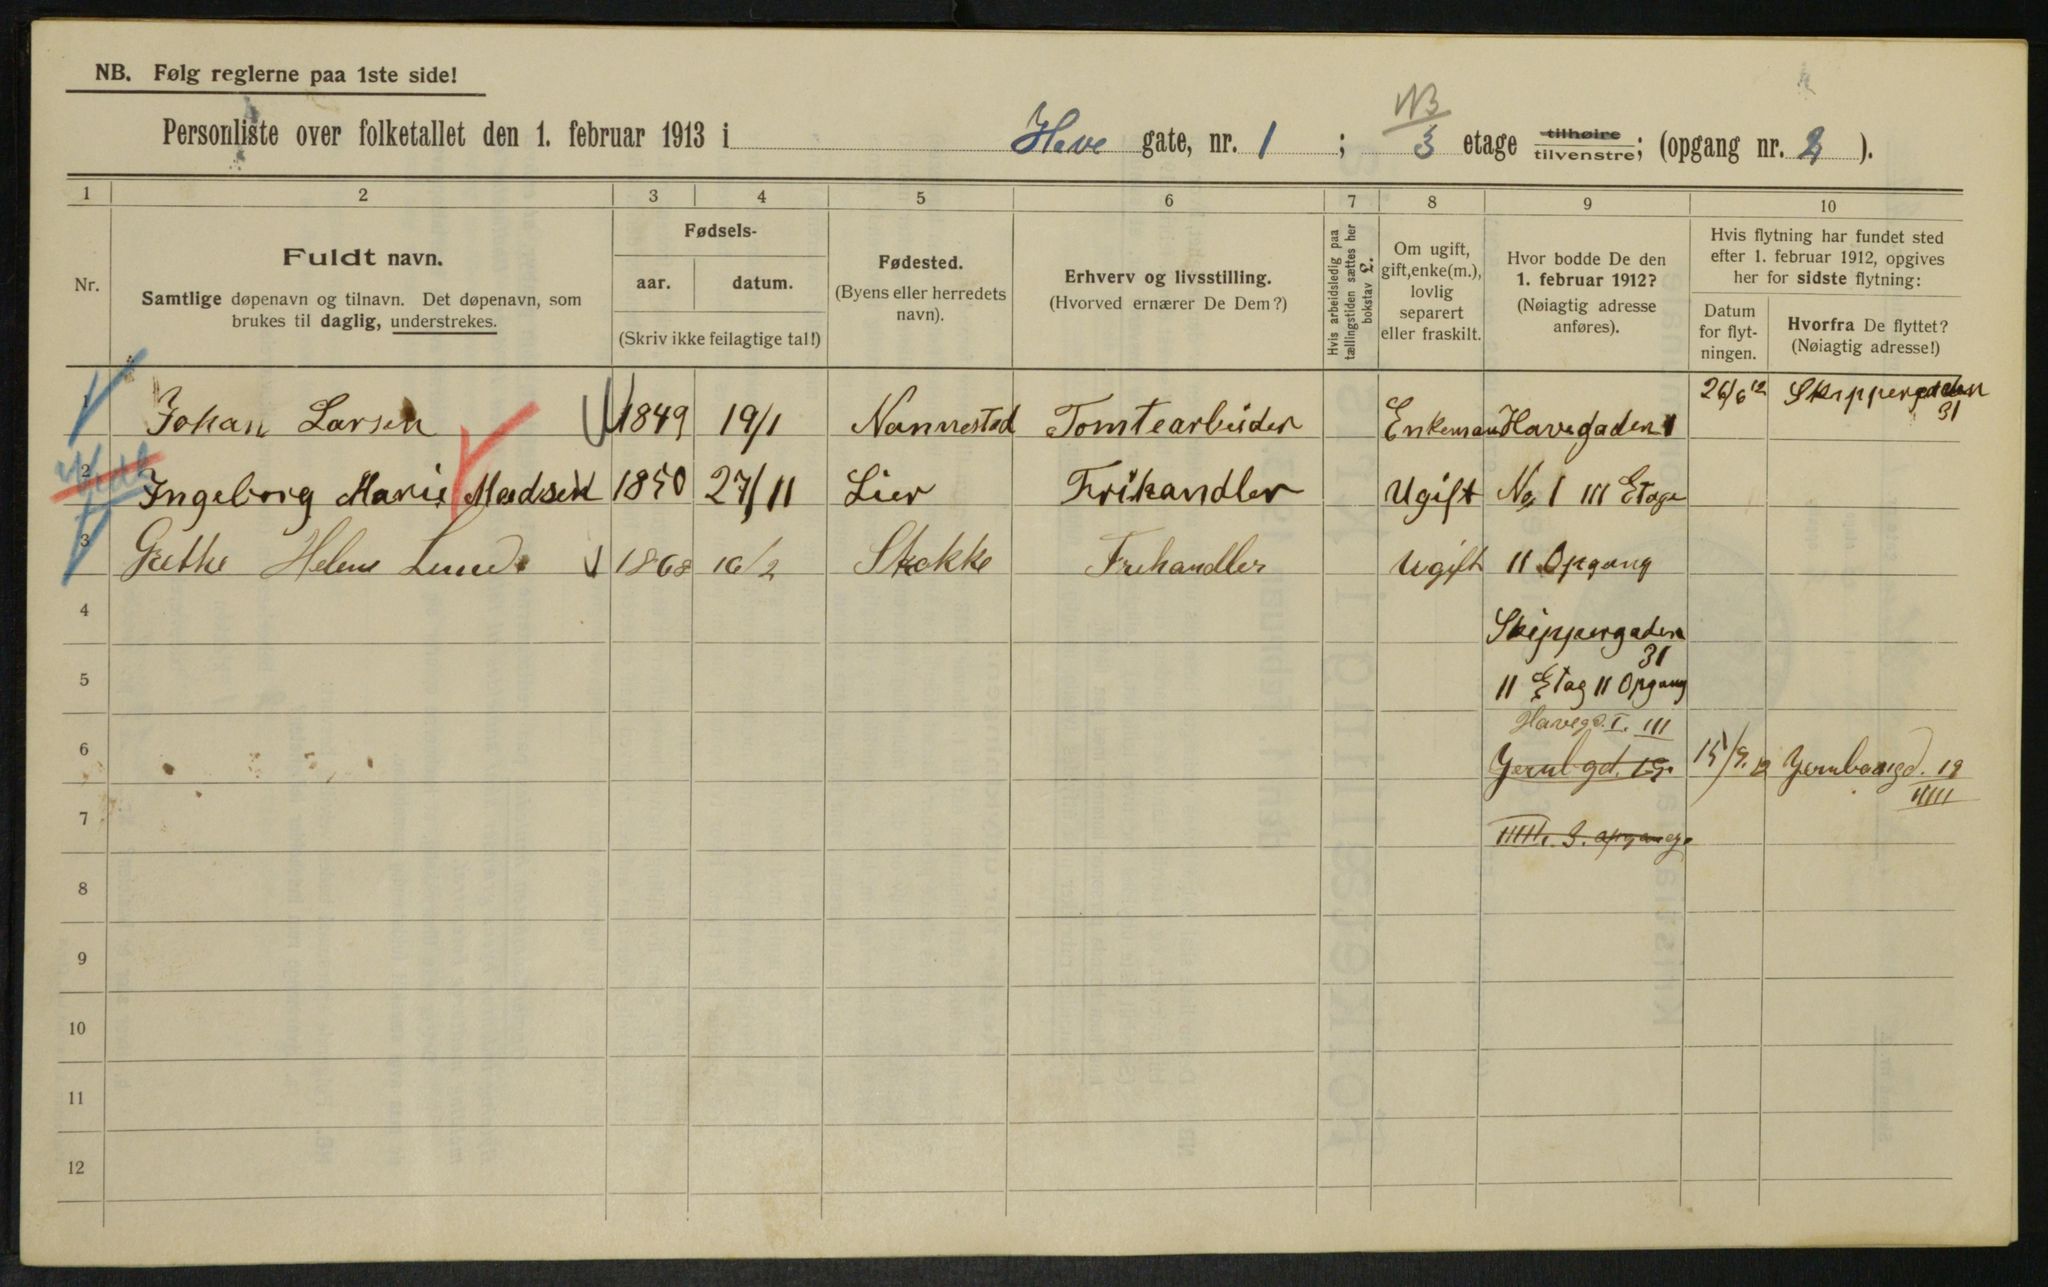 NB. Følg reglerne paa 1ste side!
NB
Personliste over folketallet den 1. februar 1913 i Have gate, nr. 1 ; 3 etage tilhøire tilvenstre; (opgang nr. 2 ).
1 2 3 4 5 6 7 8 9 10
Nr.
Fuldt navn.
Samtlige døpenavn og tilnavn. Det døpenavn, som
brukes til daglig, understrekes.
Fødsels-
aar. datum.
(Skriv ikke feilagtige tal!)
Fødested.
(Byens eller herredets
navn).
Erhverv og livsstilling.
(Hvorved ernærer De Dem?)
Hvis arbeidsledig paa
tællingstiden sættes her
bokstav L.
Om ugift,
gift, enke(m.),
lovlig
separert
eller fraskilt.
Hvor bodde De den
1. februar 1912?
(Nøiagtig adresse
anføres).
Hvis flytning har fundet sted
efter 1. februar 1912, opgives
her for sidste flytning:
Datum
for flyt-
ningen.
Hvorfra De flyttet?
(Nøiagtig adresse!)
1 Johan Larsen 1849 19/1 Nannestad Tomtearbeider Enkemand Havegaden 1 26/6 12 Skippergaden 31
2 Ingeborg Marie Madsen 1850 27/11 Lier Frikandler Ugift No 1 III Etage
3 Grethe Helene Lund 1868 16/2 Stokke Frihandler Ugift II Opgang
4 Skippergaden
31
5 II Etag II Opgang
Havegd. I. III
6 Jernbgd. 19. 15/9. 12 Jernbangd. 19
IIIII
7 IIIII. 3. opgange
8
9
10
11
12